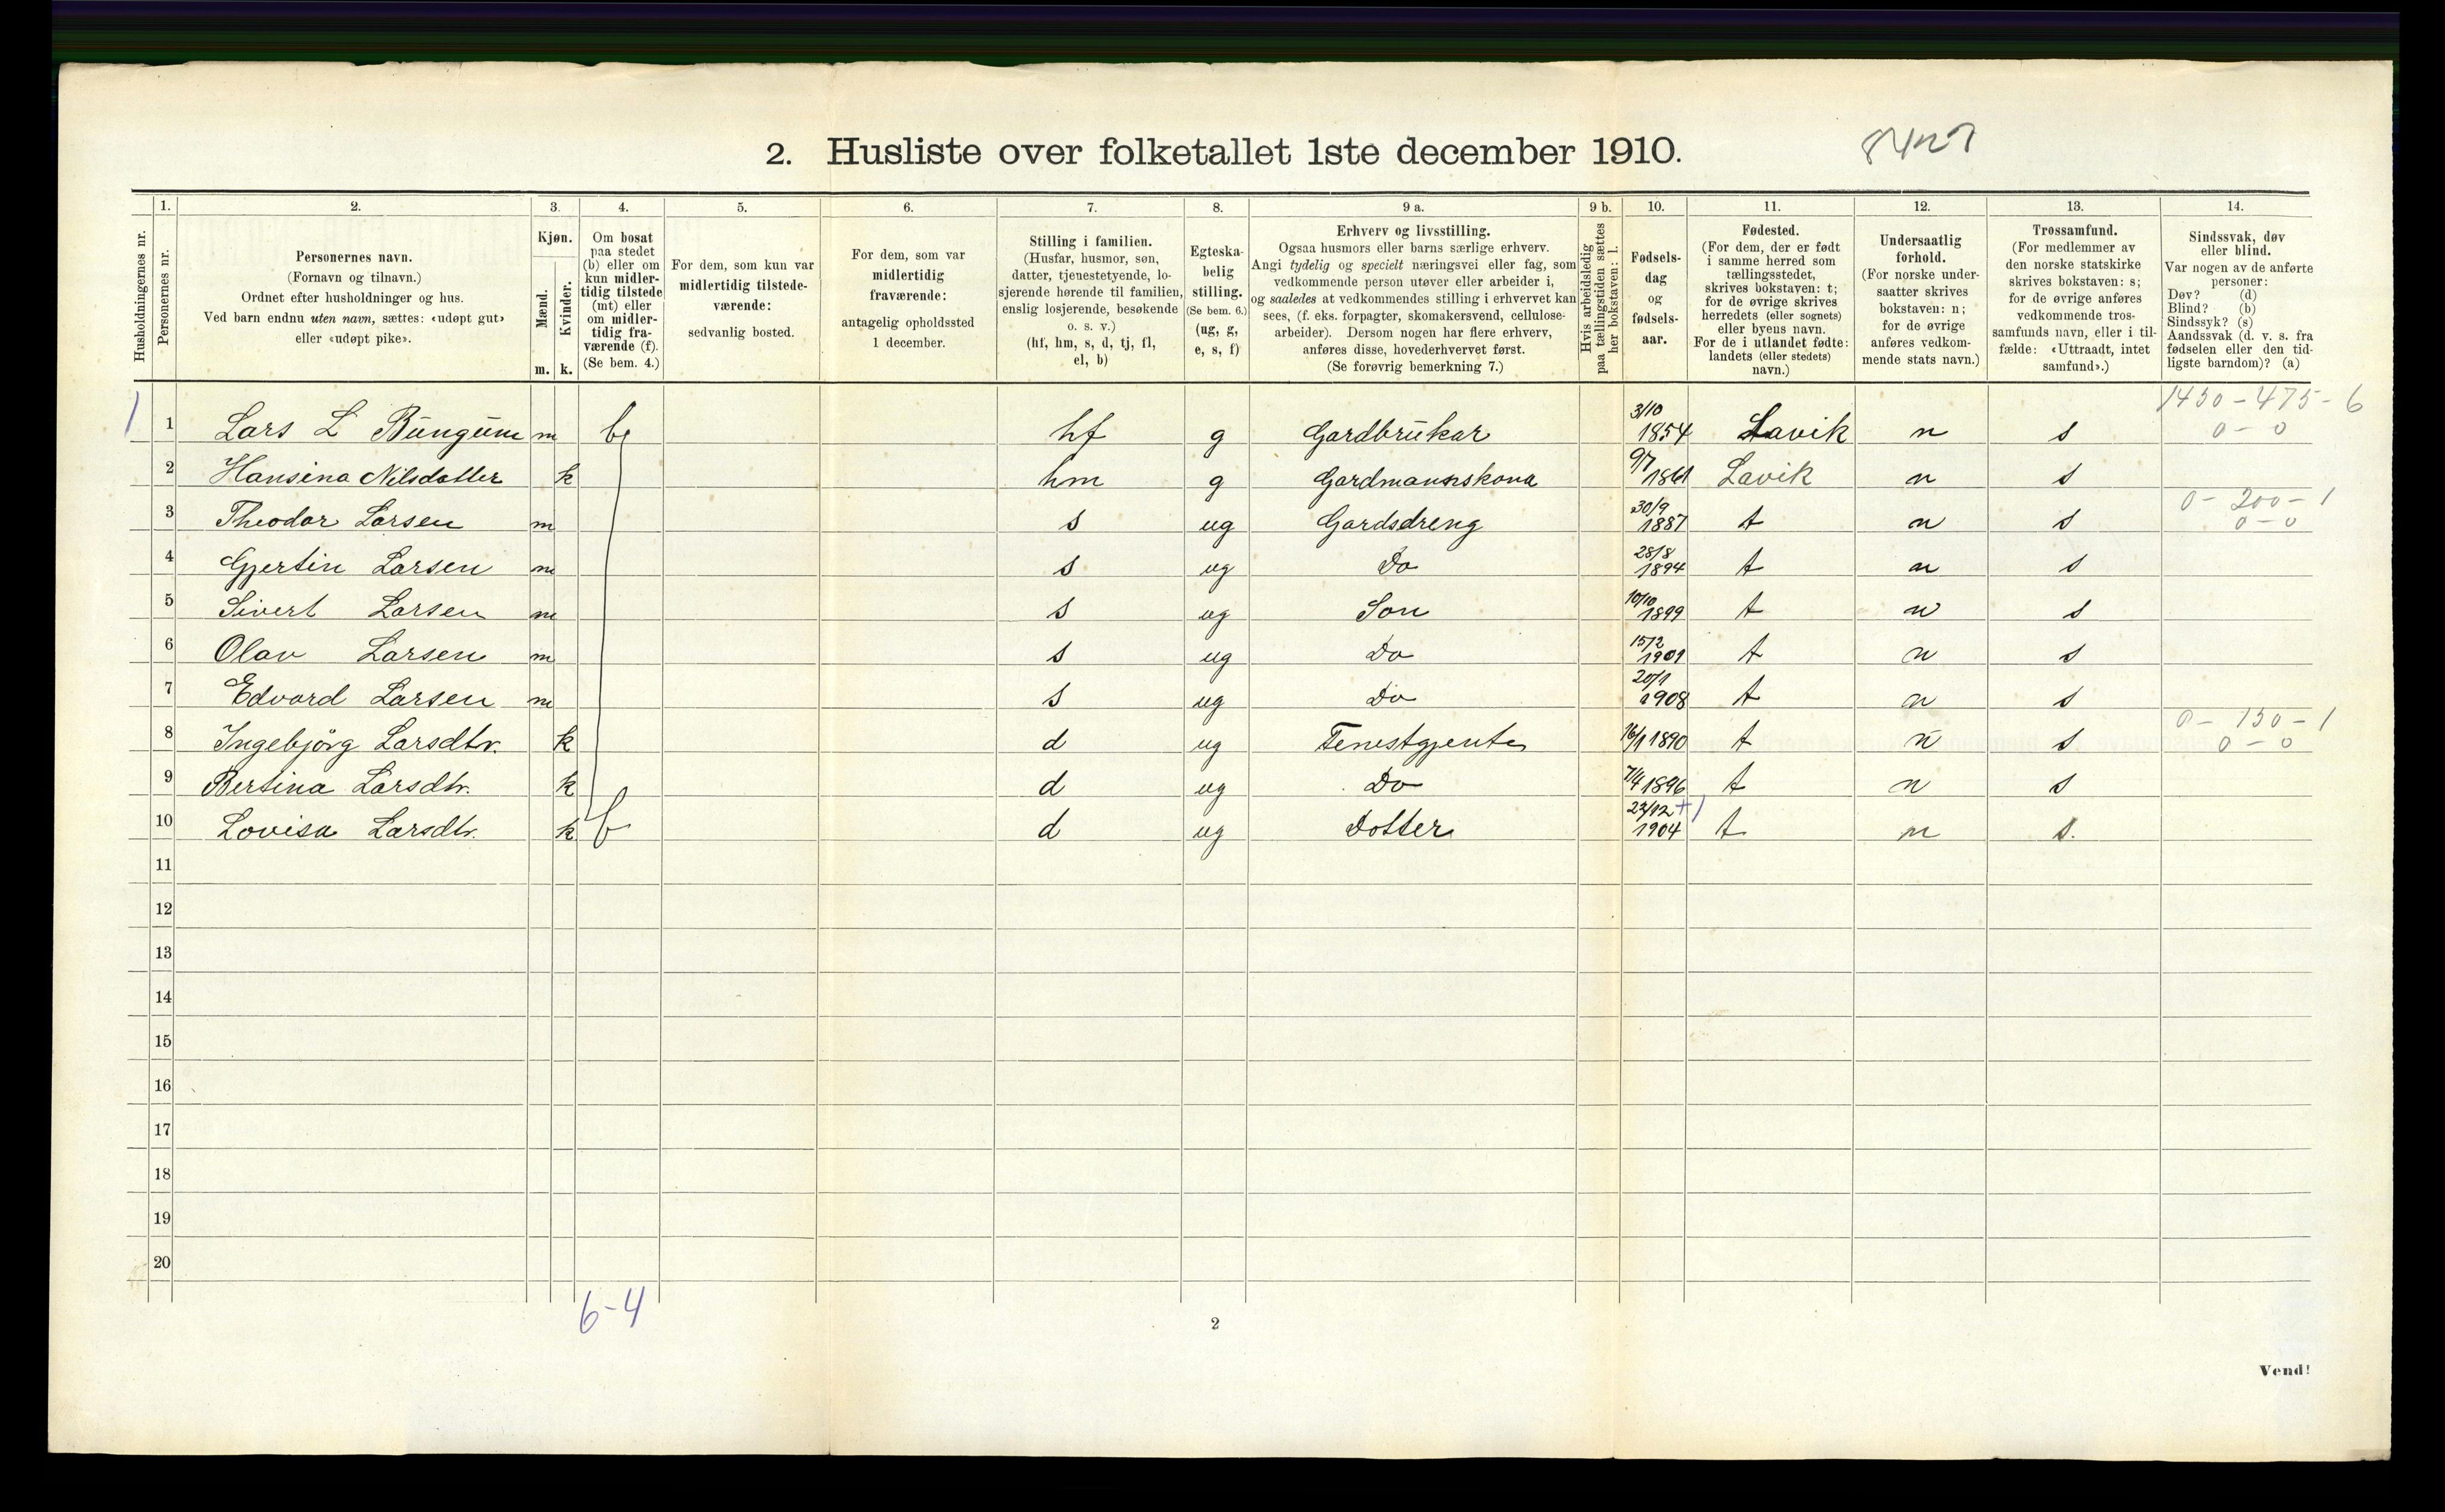 2. Husliste over folketallet 1ste december 1910.
Husholdningernes nr.
1.
Personernes nr.
2.
Personernes navn.
(Fornavn og tilnavn.)
Ordnet efter husholdninger og hus.
Ved barn endnu uten navn, sættes: «udøpt gut»
eller «udøpt pike».
3.
Kjøn.
Mænd.
Kvinder.
m. k.
4.
Om bosat
paa stedet
(b) eller om
kun midler-
tidig tilstede
(mt) eller
om midler-
tidig fra-
værende (f).
(Se bem. 4.)
5.
For dem, som kun var
midlertidig tilstede-
værende:
sedvanlig bosted.
6.
For dem, som var
midlertidig
fraværende:
antagelig opholdssted
1 december.
7.
Stilling i familien.
(Husfar, husmor, søn,
datter, tjenestetyende, lo-
sjerende hørende til familien,
enslig losjerende, besøkende
o. s. v.)
(hf, hm, s, d, tj, fl,
el, b)
8.
Egteska-
belig
stilling.
(Se bem. 6.)
(ug, g,
e, s, f)
9 a.
Erhverv og livsstilling.
Ogsaa husmors eller barns særlige erhverv.
Angi tydelig og specielt næringsvei eller fag, som
vedkommende person utøver eller arbeider i,
og saaledes at vedkommendes stilling i erhvervet kan
sees, (f. eks. forpagter, skomakersvend, cellulose-
arbeider). Dersom nogen har flere erhverv,
anføres disse, hovederhvervet først.
(Se forøvrig bemerkning 7.)
9 b.
Hvis arbeidsledig
paa tællingstiden sættes
her bokstaven: l.
10.
Fødsels-
dag
og
fødsels-
aar.
11.
Fødested.
(For dem, der er født
i samme herred som
tællingsstedet,
skrives bokstaven: t;
for de øvrige skrives
herredets (eller sognets)
eller byens navn.
For de i utlandet fødte:
landets (eller stedets)
navn.)
12.
Undersaatlig
forhold.
(For norske under-
saatter skrives
bokstaven: n;
for de øvrige
anføres vedkom-
mende stats navn.)
13.
Trossamfund.
(For medlemmer av
den norske statskirke
skrives bokstaven: s;
for de øvrige anføres
vedkommende tros-
samfunds navn, eller i til-
fælde: «Uttraadt, intet
samfund».)
14.
Sindssvak, døv
eller blind.
Var nogen av de anførte
personer:
Døv? (d)
Blind? (b)
Sindssyk? (s)
Aandssvak (d. v. s. fra
fødselen eller den tid-
ligste barndom)? (a)
1450-475-6
1 1 Lars L Bungum m b hf g Gardbrukar 3/10 1854 Lavik n s 0-0
2 Hansina Nilsdatter k hm g Gardmannskona 9/7 1861 Lavik n s
3 Theodor Larsen m s ug Gardsdreng 30/9 1887 t n s 0-200-1 0-0
4 Gjertin Larsen m s ug Do 28/8 1894 t n s
5 Sivert Larsen m s ug Son 10/10 1899 t n s
6 Olav Larsen m s ug Do 15/2 1901 t n s
7 Edvard Larsen m s ug Do 20/1 1908 t n s
8 Ingebjörg Larsdtr. k d ug Tenestgjenta 16/1 1890 t n s 0-150-1 0-0
9 Bertina Larsdtr. k d ug Do 7/4 1896 t n s
10 Lovisa Larsdtr. k b d ug Dotter 23/12 1904 t n s.
11
12
13
14
15
16
17
18
19
20
6-4
2
Vend!